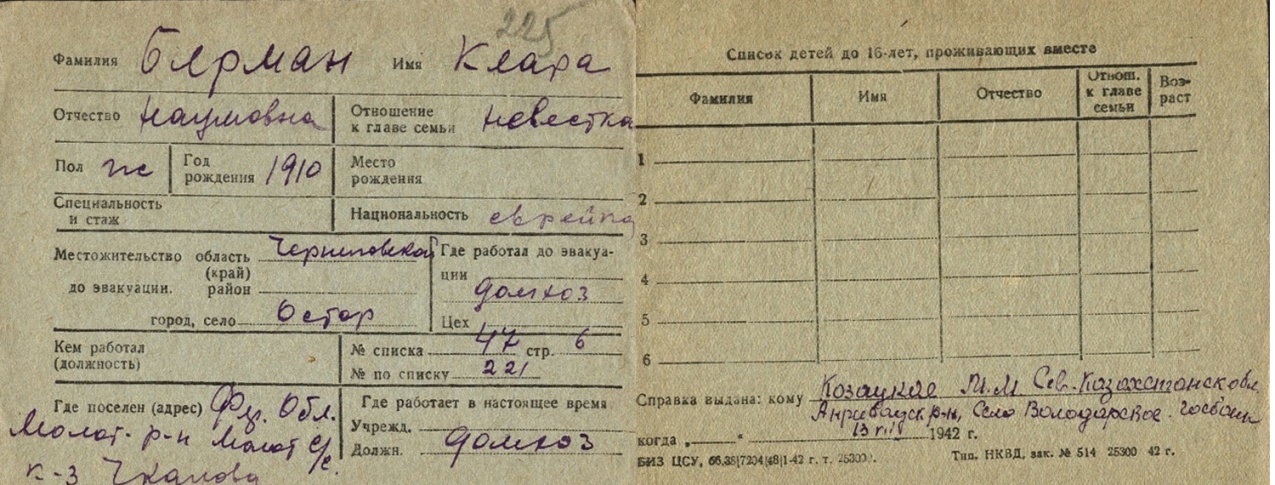 225
Фамилия Берман Имя Клара
Отчество Наумовна Отношение к главе семьи невестка
Пол ж Год рождения 1910 Место рождения
Специальность и стаж Национальность еврейка
Местожительство до эвакуации. область (край) Черниговская
район
город, село Остер
Где работал до эвакуации домхоз
Цех
Кем работал (должность)
№ списка 47 стр. 6
№ по списку 221
Где поселен (адрес) Фр. Обл.
Молот. р-н Молот с/с.
к-з Чкалова
Где работает в настоящее время
Учрежд.
Должн. домхоз
Список детей до 16-лет, проживающих вместе
Фамилия Имя Отчество Отнош. к главе семьи Возраст
1
2
3
4
5
6
Справка выдана: кому Козацкое М.М Сев-Казахстанск обл
р-н, Село Володарское.
когда „ “ 13 1942 г.
БИЗ ЦСУ,
Тип. НКВД, зак. № 514 25300 42 г.